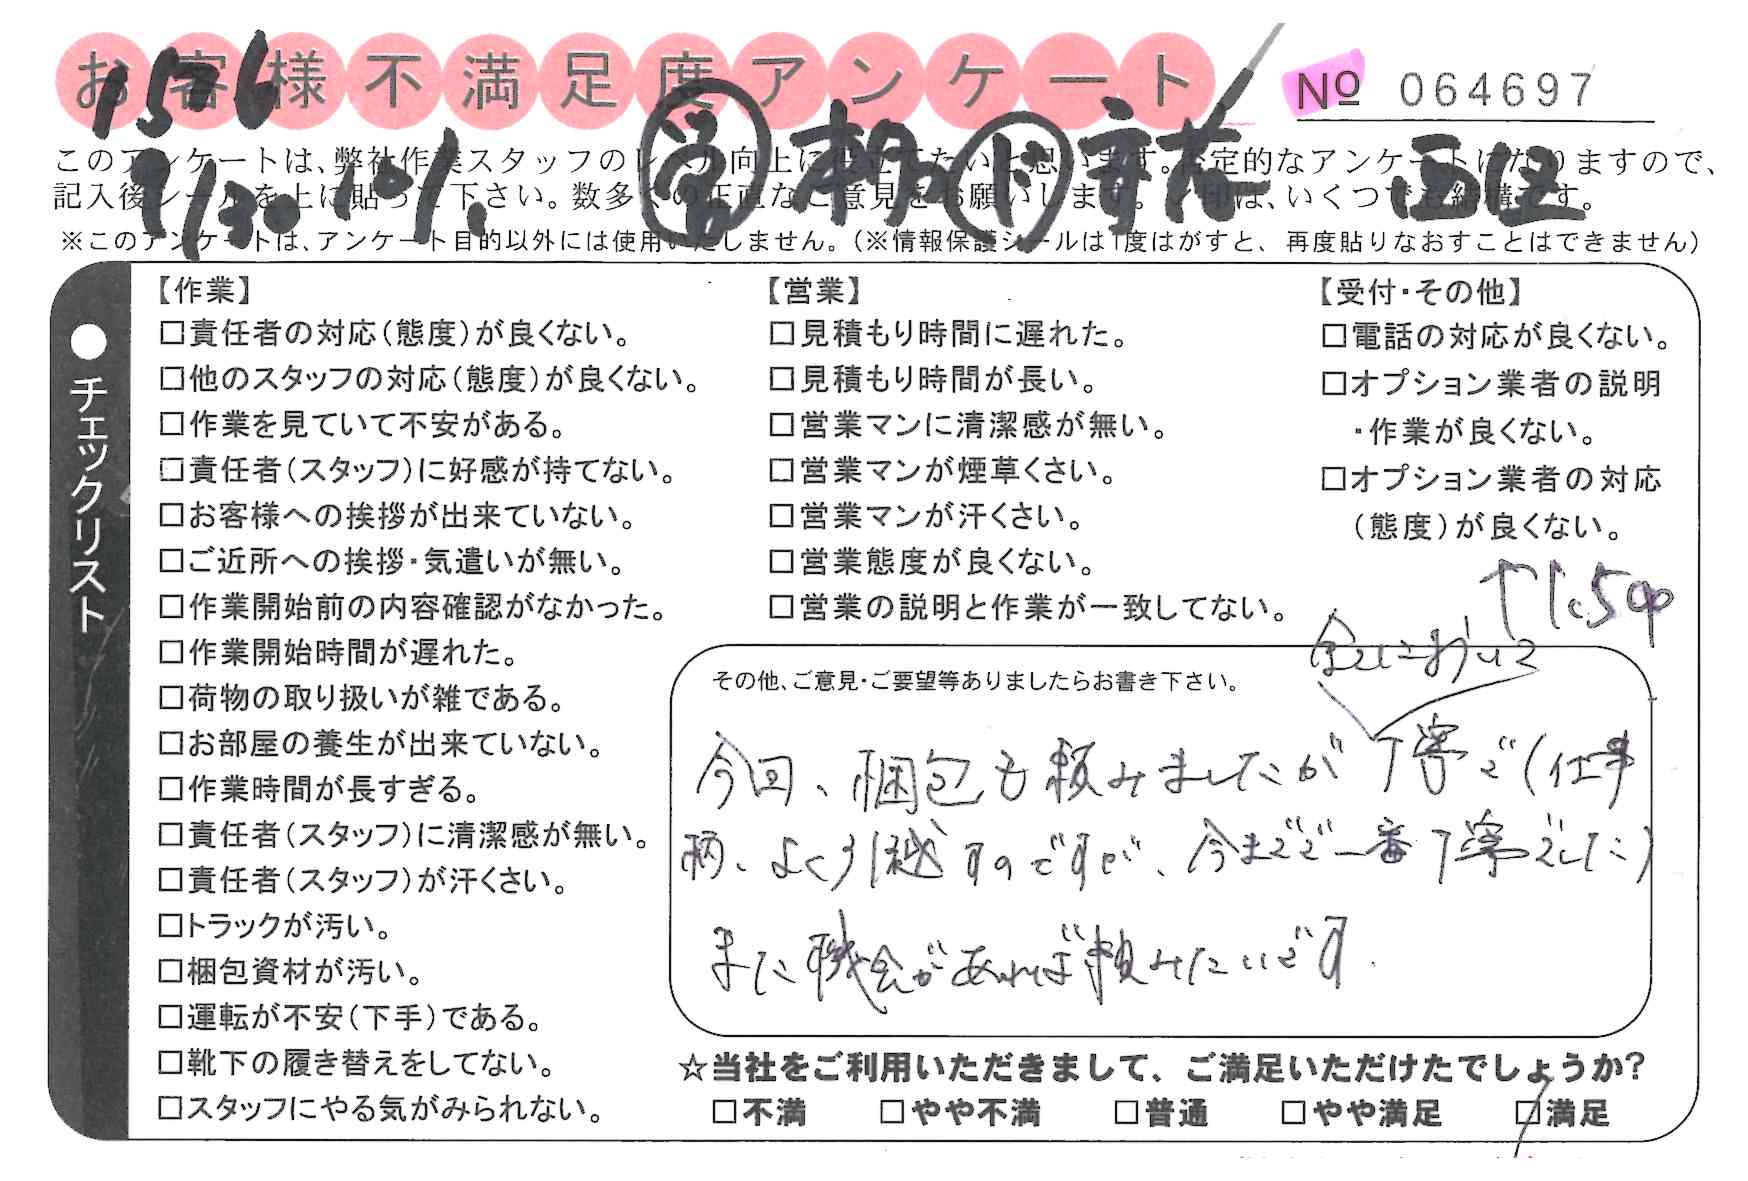 お客様不満足度アンケート
№ 064697
1576
9/30 10%
このアンケートは、弊社作業スタッフのレベル向上に役立てたいと思います。否定的なアンケートになりますので、
記入後シールを上に貼って下さい。数多くの正直なご意見をお願いします。✓印は、いくつでも結構です。
※このアンケートは、アンケート目的以外には使用いたしません。（※情報保護シールは1度はがすと、再度貼りなおすことはできません）
●チェックリスト
【作業】
□責任者の対応（態度）が良くない。
□他のスタッフの対応（態度）が良くない。
□作業を見ていて不安がある。
□責任者（スタッフ）に好感が持てない。
□お客様への挨拶が出来ていない。
□ご近所への挨拶・気遣いが無い。
□作業開始前の内容確認がなかった。
□作業開始時間が遅れた。
□荷物の取り扱いが雑である。
□お部屋の養生が出来ていない。
□作業時間が長すぎる。
□責任者（スタッフ）に清潔感が無い。
□責任者（スタッフ）が汗くさい。
□トラックが汚い。
□梱包資材が汚い。
□運転が不安（下手）である。
□靴下の履き替えをしてない。
□スタッフにやる気がみられない。
【営業】
□見積もり時間に遅れた。
□見積もり時間が長い。
□営業マンに清潔感が無い。
□営業マンが煙草くさい。
□営業マンが汗くさい。
□営業態度が良くない。
□営業の説明と作業が一致してない。
【受付・その他】
□電話の対応が良くない。
□オプション業者の説明
・作業が良くない。
□オプション業者の対応
（態度）が良くない。
その他、ご意見・ご要望等ありましたらお書き下さい。
全てにおいて
今回、梱包も頼みましたが丁寧で（仕事
柄、よく引越すのですが、今までで一番丁寧でした）
また機会があれば頼みたいです.
☆当社をご利用いただきまして、ご満足いただけたでしょうか?
□不満 □やや不満 □普通 □やや満足 □満足